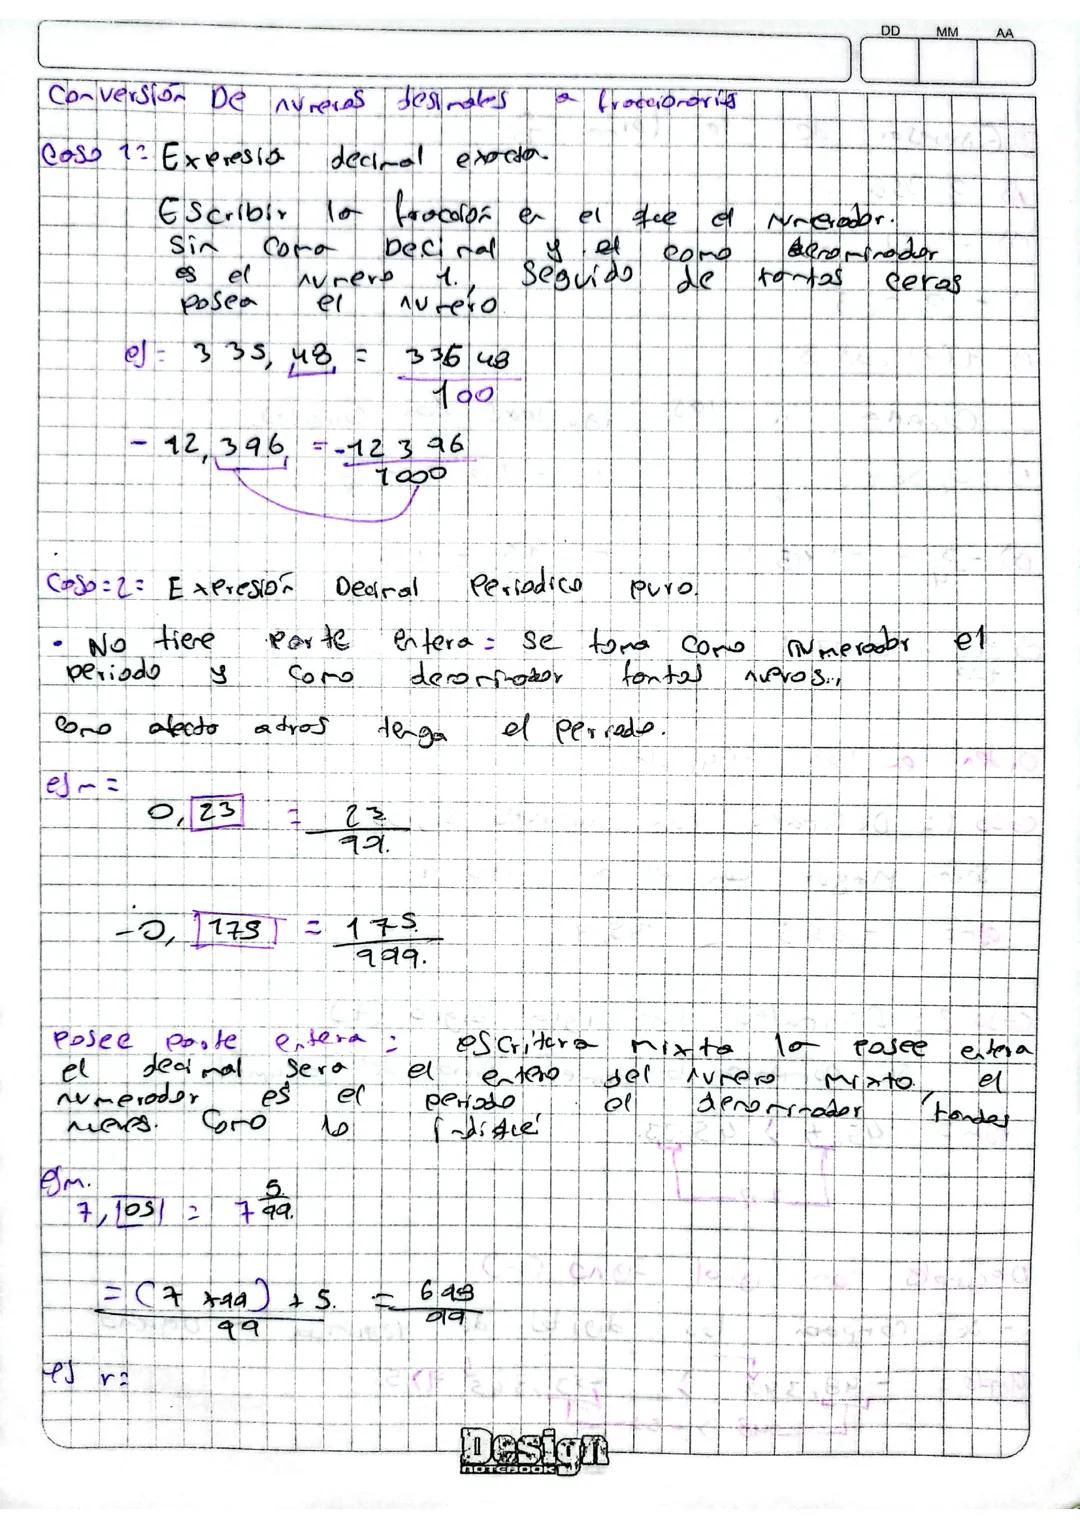 DD MM AA
Conversión De números desimales a fraccionaris
Caso 1: Expresio decimal exacta.
Escribir la fracción en el que el numerador.
Sin coma Decimal y el como denominador
es el numero 1. Seguido de tantas ceras
posea el numero
ej = 335,48 = 33548
100
- 12,396 = -12396
1000
Caso:2: Expresión Decimal Periodico puro.
• No tiene parte entera = se toma como numerador el
periodo y como denominador tantos nueves..,
como tenga el periodo.
ejm=
0,23 = 23
99.
-0,175 = 175.
999.
Posee parte entera : escritura mixta la posee entera
el decimal sera el entero del numero mixto, el
numerador es el periodo el denominador tandes
nueves. Como lo indique
Ejm.
7,05 = 7 5
99.
= (7 x 99) + 5. = 698
99 99
ej r=
Design
NOTEBOOK